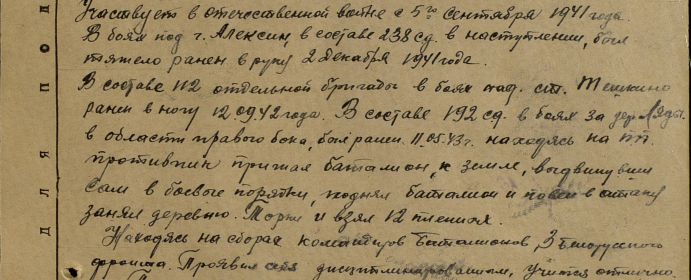 Участвует в отечественной войне с 5го сентября 1941 года.
В боях под г. Алексин, в составе 238 сд. в наступлении, был
тяжело ранен в руку 2 декабря 1941 года.
В составе 112 отдельной бригады в боях под. ст.
ранен в ногу 12.09.42 года. В составе 192 сд. в боях за дер. Ляды.
в области правого бока, был ранен. 11.05.43 г. находясь на
противник прижал баталион, к земле, выдвинувшись
сам в боевые порядки, поднял баталион и повел в атаку
занял деревню. и взял 12 пленных.
Находясь на сборах командиров баталионов, 3 Белорусского
фронта. Проявил себя дисциплинированным, учится отлично.
ДЛЯ ПОД